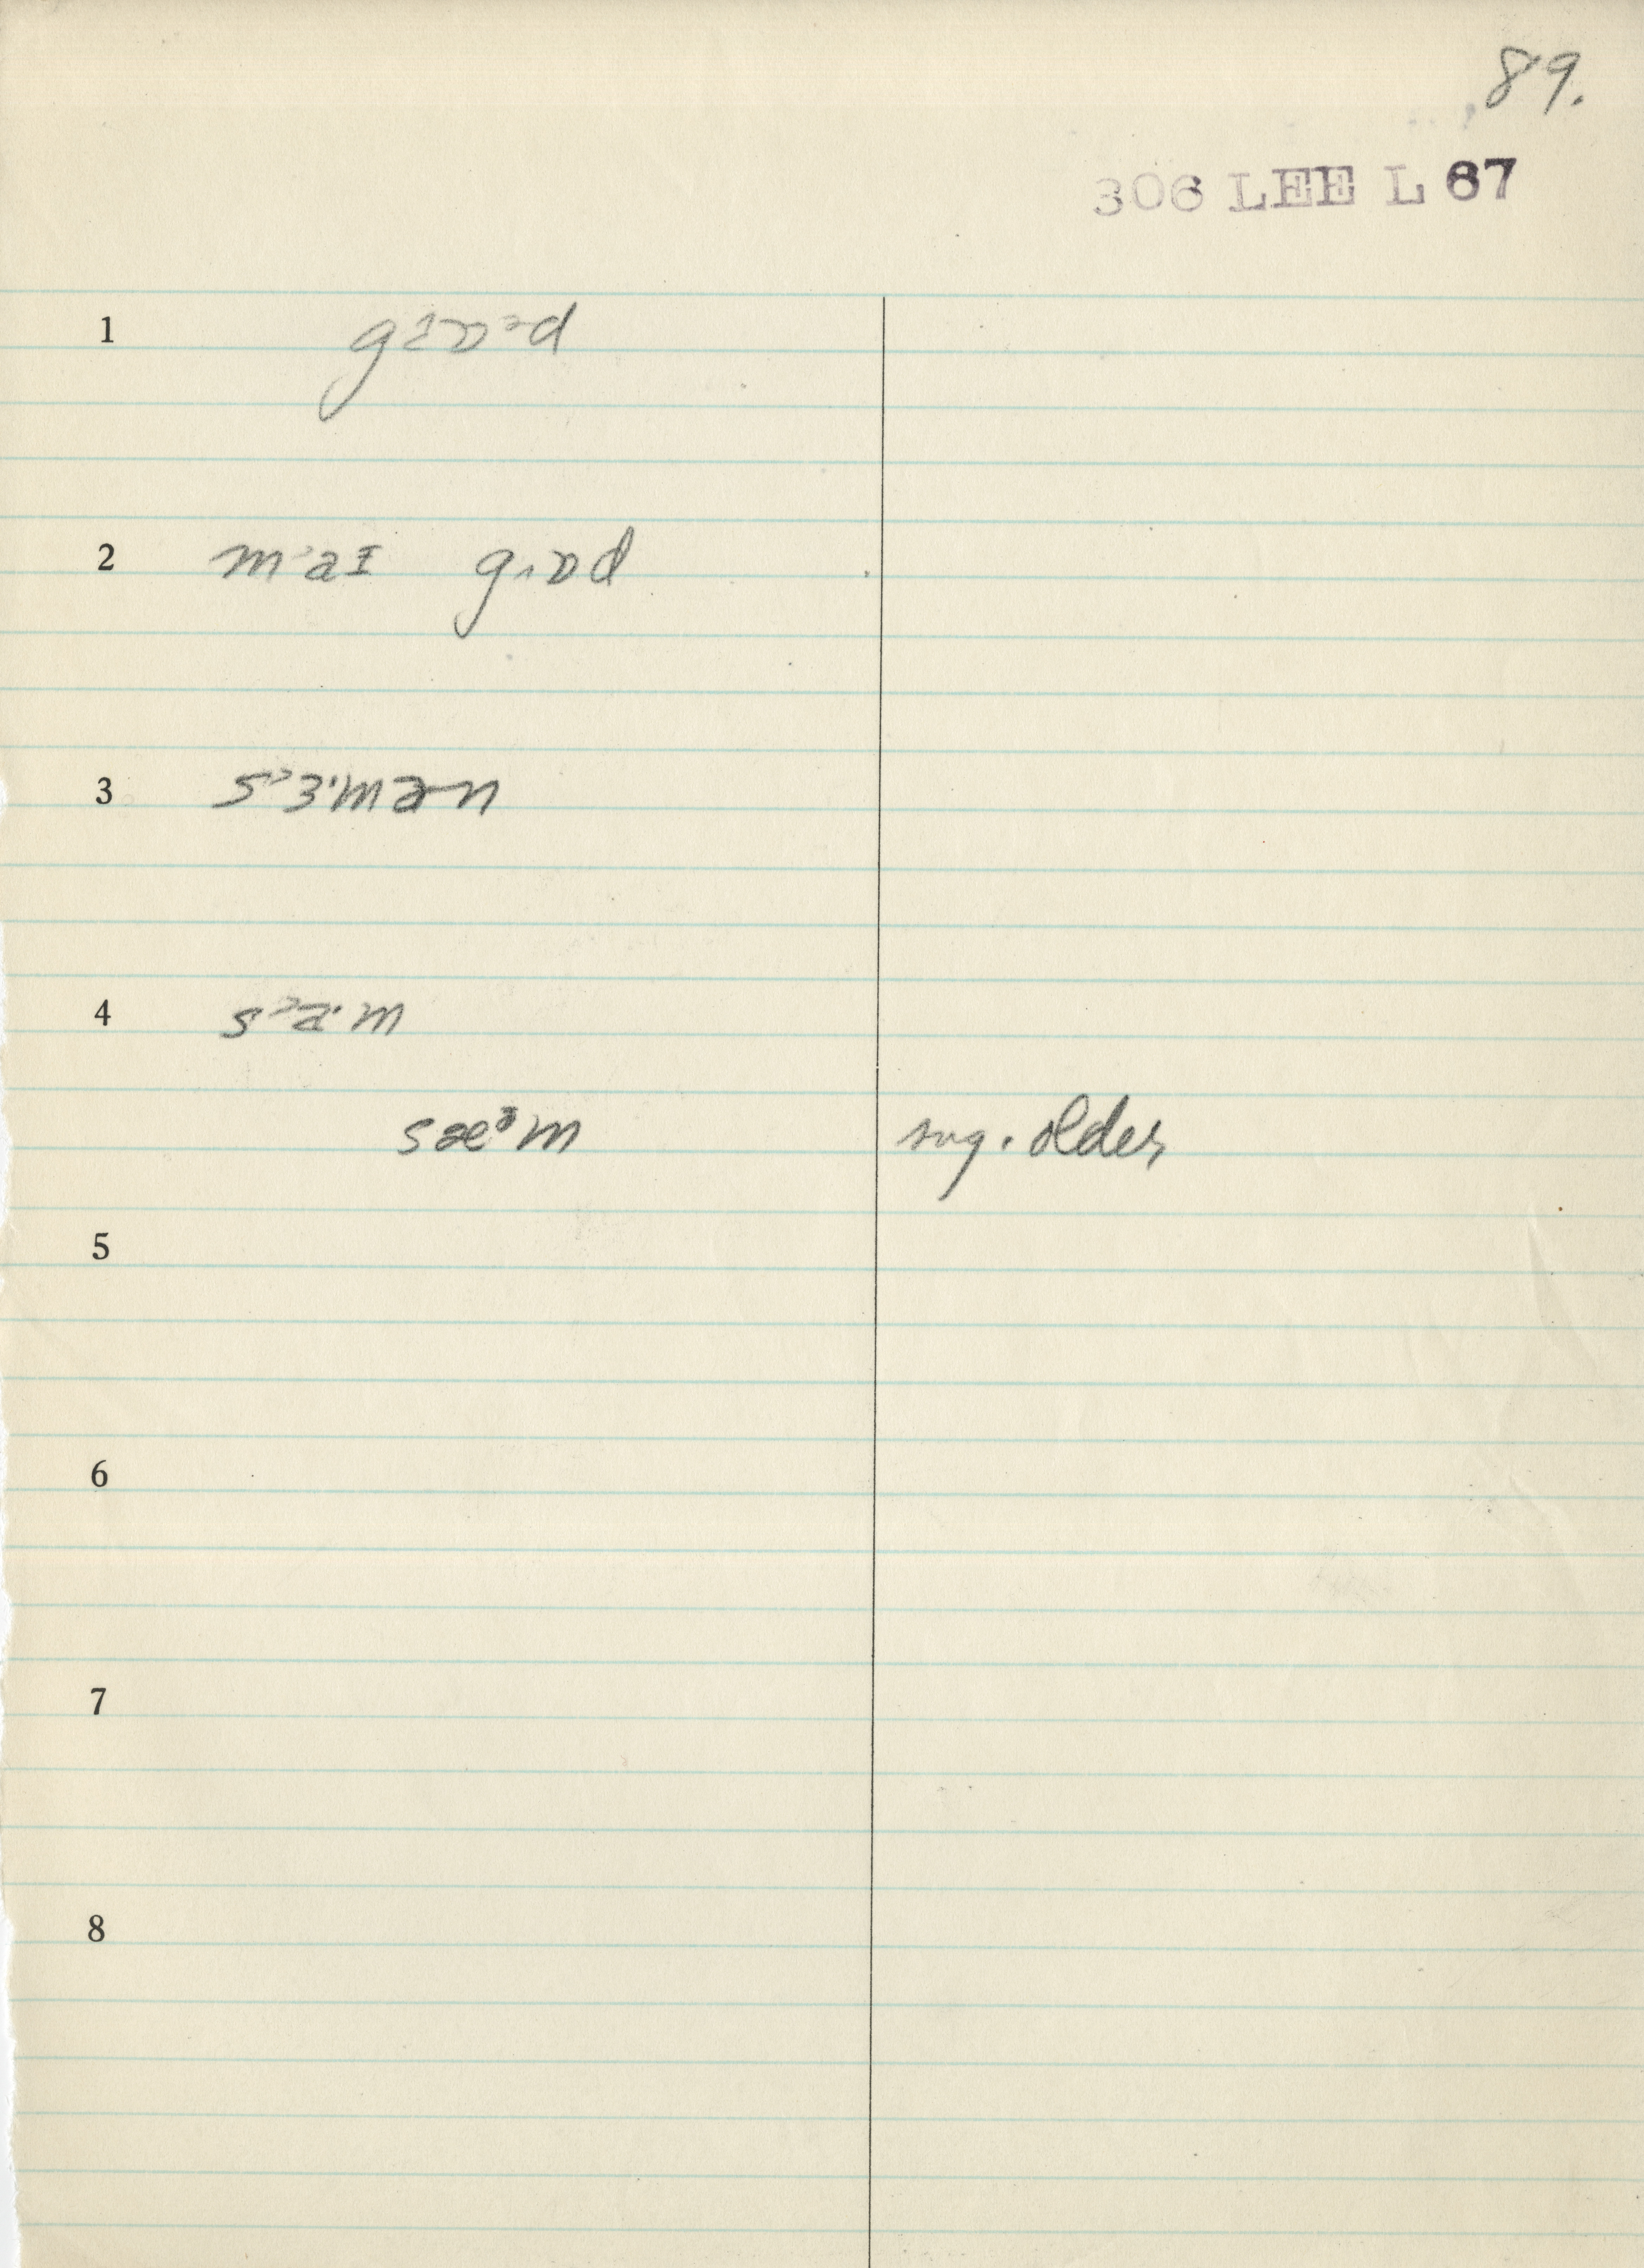 89.
306 LEE L 67
1
2 m˃aɪ g˄ɒd
3 s˃ɜ·mən
4
sæᵊm sug. older
5
6
7
8